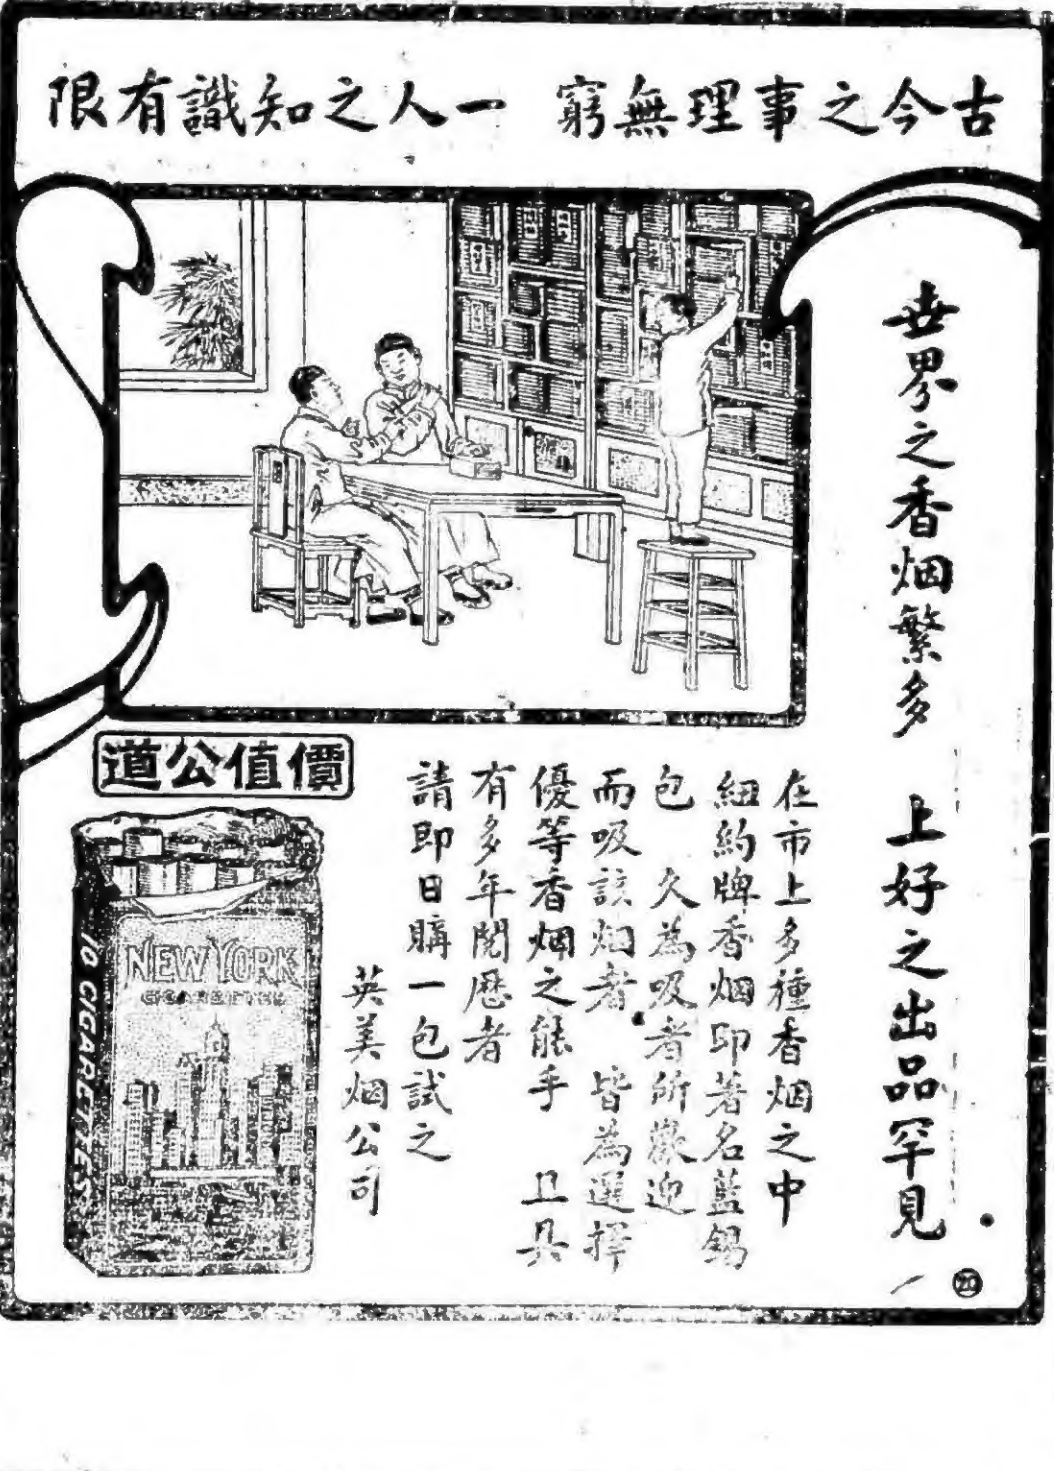 古今之事理無窮 一人之知識有限
世界之香烟繁多 上好之出品罕見
在市上多種香烟之中
紐約牌香烟印著名藍錫
包 久為吸者所歡迎
而吸該烟者 皆為選擇
優等香烟之能手 且具
有多年閱歷者
請即日購一包試之
英美烟公司
價值公道
NEW YORK
CIGARETTES
10 CIGARETTES
20